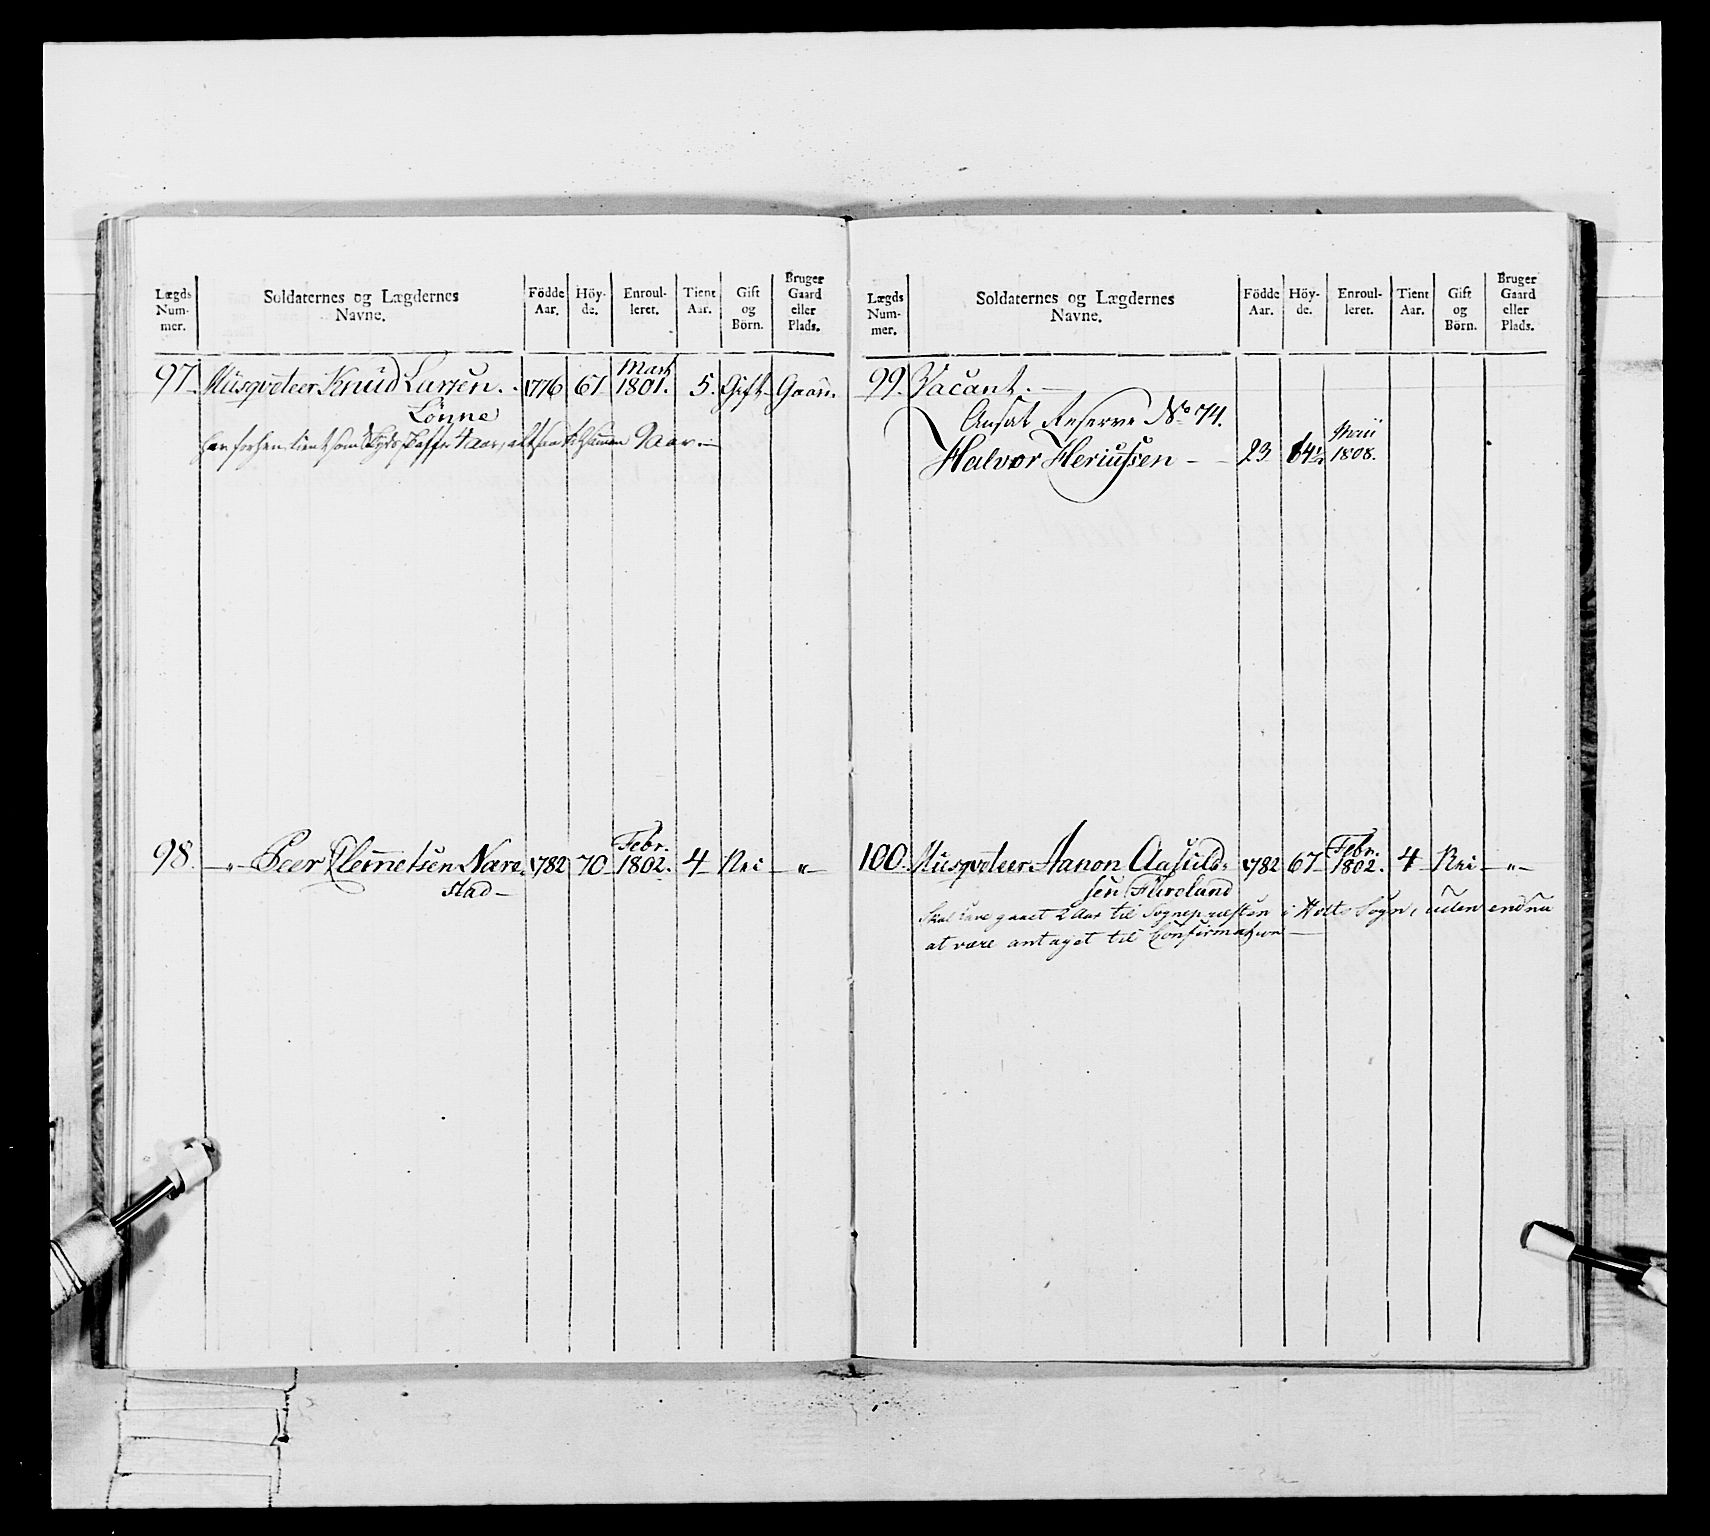 Lægds Num- mer.
Soldaternes og Lægdernes Navne.
Födde Aar.
Höy- de.
Enroul- leret.
Tient Aar.
Gift og Börn.
Bruger Gaard eller Plads.
97. Musqveteer Knud Larsen. 1776 67 Marti 1801. 5. Gift Gaard.
Lønne
har forhen tient som 4 aar, altsaa tilsammen 9 aar.
98. „ Peer Clemetsen Nare- 1782 70 Febr. 1802. 4 Nei „
stad
Lægds Num- mer.
Soldaternes og Lægdernes Navne.
Födde Aar.
Höy- de.
Enroul- leret.
Tient Aar.
Gift og Börn.
Bruger Gaard eller Plads.
99. Vacant.
Ansat Reserve No 74.
Halvor Heriufsen 23 64½ Maii 1808.
100. Musqveteer Aanon Aasuld- 1782 67 Febr. 1802. 4 Nei „
sen Fliveland
Skal have gaaet 2 Aar til Sognepræsten i Holts Sogn, uden endnu
at være antaget til Confirmation